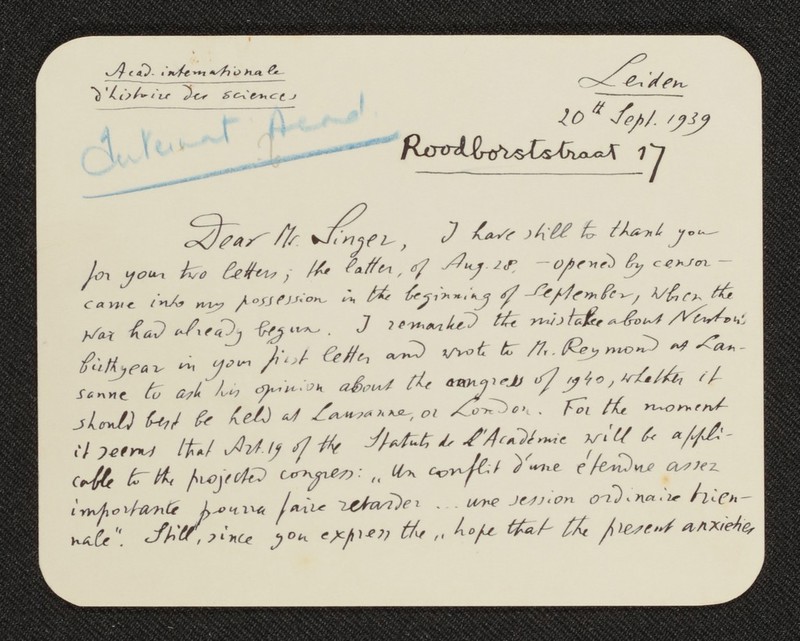 Acad. internationale
d'histoire des sciences
Internat Acad
Leiden
20th Sept. 1939
Roodborststraat 17
Dear Mr. Singer, I have still to thank you
for your two letters; the latter, of Aug. 28, - opened by censor -
came into my possession in the beginning of September, when the
war had already begun. I remarked the mistake about Newton's
birthyear in your first letter and wrote to Mr. Reymond at Lau-
sanne to ask his opinion about the congress of 1940, whether it
should best be held at Lausanne, or London. For the moment
it seems that Art. 19 of the Statuts de l'Académie will be appli-
cable to the projected congress: „Un conflit d'une étendue assez
importante pourra faire retarder ... une session ordinaire trien-
nale". Still, since you express the „hope that the present anxieties